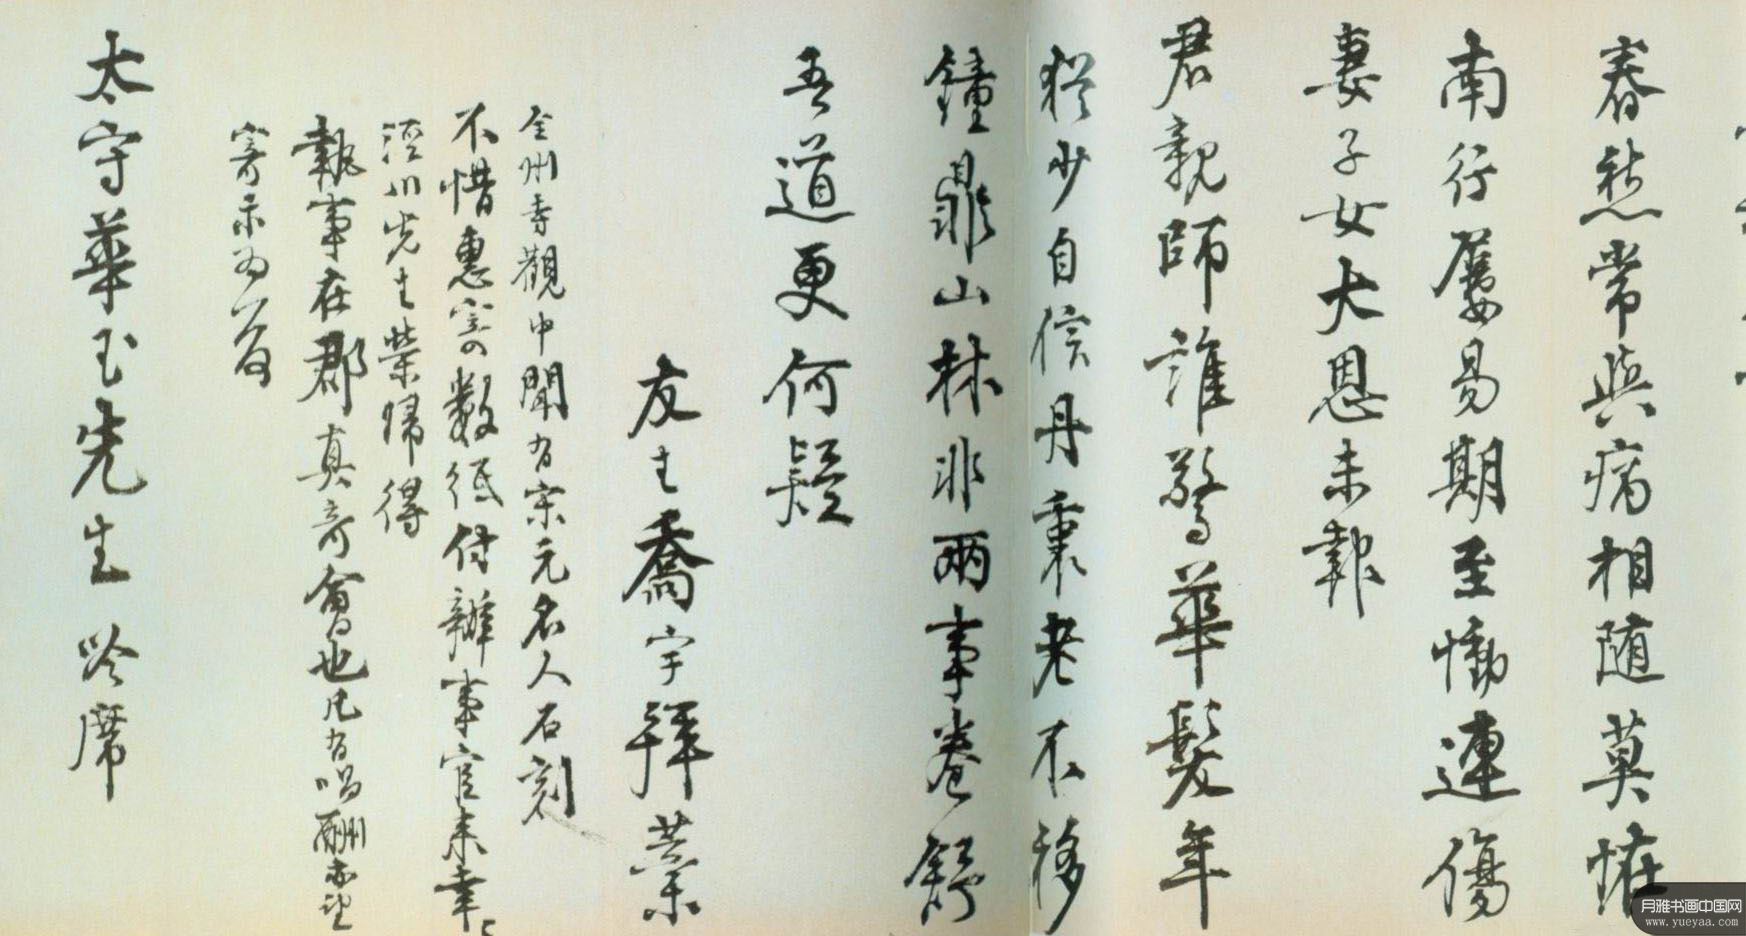 春愁常與病相隨莫恠
南行屢易期至慟連傷
妻子女大恩未報
君親師誰驚華髮年
猶少自信丹衷老不移
鐘鼎山林非兩事卷舒
吾道更何疑
友生喬宇拜藁
全州寺觀中聞有宋元名人石刻
不惜惠寄數紙付辦事官來幸
涇川先生榮歸得
執事在郡真奇會也凡有唱酬亦望
寄示為
太守華玉先生吟席
月雅书画中国网
www.yueyaa.com